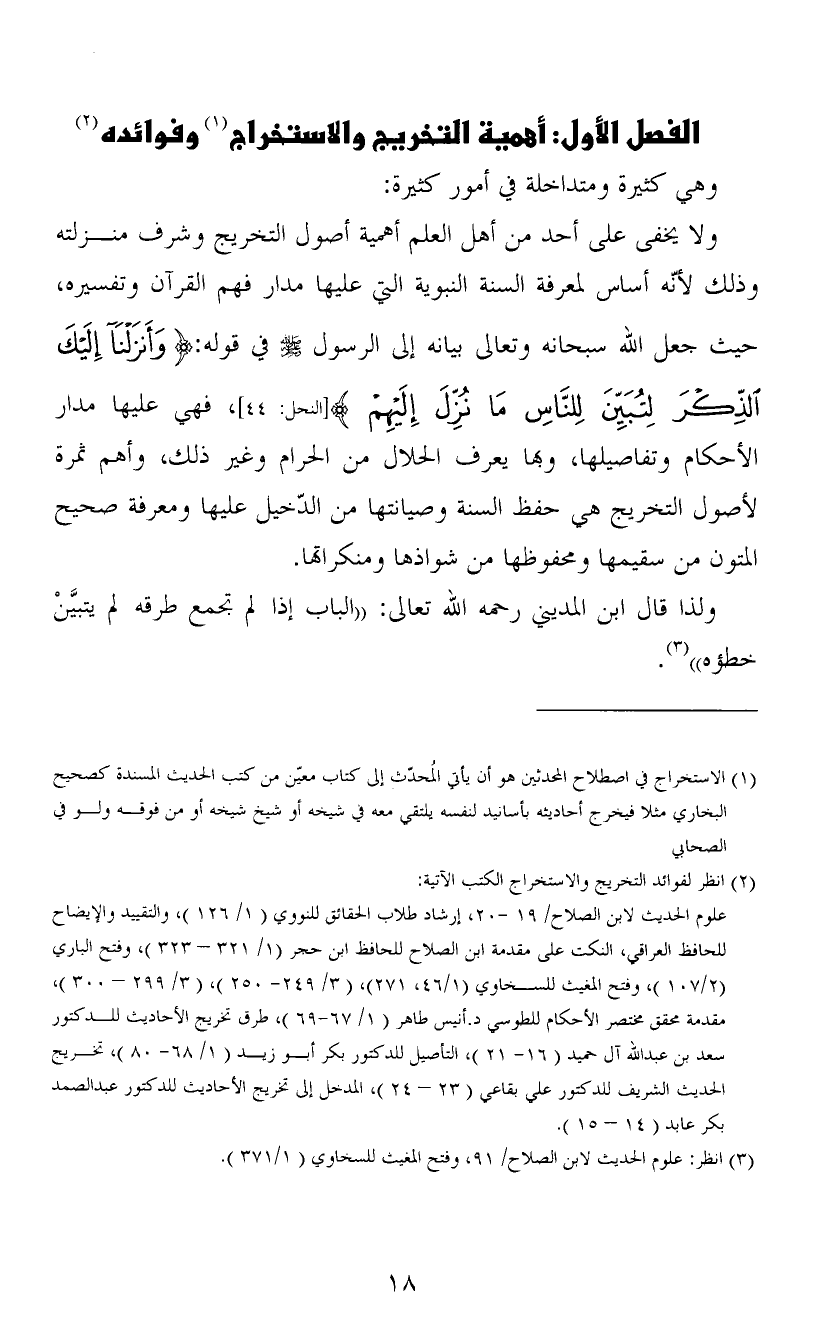 الفصل الأول: أهمية التخريج والاستخراج(١) وفوائده(٢)
وهي كثيرة ومتداخلة في أمور كثيرة:
ولا يخفى على أحد من أهل العلم أهمية أصول التخريج وشرف منـــزلته
وذلك لأنّه أساس لمعرفة السنة النبوية التي عليها مدار فهم القرآن وتفسيره،
حيث جعل الله سبحانه وتعالى بيانه إلى الرسول ﷺ في قوله:﴿ وَأَنزَلْنَآ إِلَيْكَ
ٱلذِّكْرَ لِتُبَيِّنَ لِلنَّاسِ مَا نُزِّلَ إِلَيْهِمْ ﴾[النحل: ٤٤]، فهي عليها مدار
الأحكام وتفاصيلها، وبها يعرف الحلال من الحرام وغير ذلك، وأهم ثمرة
لأصول التخريج هي حفظ السنة وصيانتها من الدّخيل عليها ومعرفة صحيح
المتون من سقيمها ومحفوظها من شواذها ومنكراتها.
ولذا قال ابن المديني رحمه الله تعالى: ((الباب إذا لم تجمع طرقه لم يتبيَّنْ
خطؤه))(٣).
(١) الاستخراج في اصطلاح المحدثين هو أن يأتي المُحدّث إلى كتاب معيّن من كتب الحديث المسندة كصحيح
البخاري مثلا فيخرج أحاديثه بأسانيد لنفسه يلتقي معه في شيخه أو شيخ شيخه أو من فوقـــه ولـــو في
الصحابي
(٢) انظر لفوائد التخريج والاستخراج الكتب الآتية:
علوم الحديث لابن الصلاح/ ١٩ -٢٠، إرشاد طلاب الحقائق للنووي ( ١/ ١٢٦ )، والتقييد والإيضاح
للحافظ العراقي، النكت على مقدمة ابن الصلاح للحافظ ابن حجر (١/ ٣٢١ – ٣٢٣ )، وفتح الباري
(١٠٧/٢ )، وفتح المغيث للســخاوي (٤٦/١، ٢٧١)، ( ٣/ ٢٤٩- ٢٥٠ )، ( ٣/ ٢٩٩ – ٣٠٠ )،
مقدمة محقق مختصر الأحكام للطوسي د.أنيس طاهر ( ١/ ٦٧-٦٩ )، طرق تخريج الأحاديث للـــدكتور
سعد بن عبدالله آل حميد ( ١٦- ٢١ )، التأصيل للدكتور بكر أبـــو زيـــد ( ١/ ٦٨- ٨٠ )، تخـــريج
الحديث الشريف للدكتور علي بقاعي ( ٢٣ – ٢٤ )، المدخل إلى تخريج الأحاديث للدكتور عبدالصمد
بكر عابد ( ١٤ – ١٥ ).
(٣) انظر: علوم الحديث لابن الصلاح/ ٩١، وفتح المغيث للسخاوي ( ٣٧١/١ ).
١٨